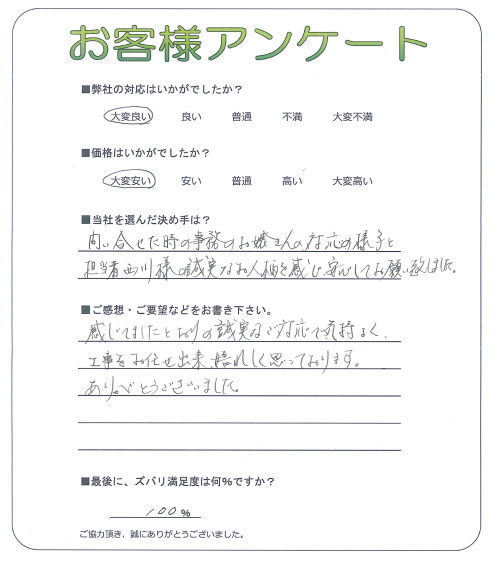 お客様アンケート
■弊社の対応はいかがでしたか？
大変良い 良い 普通 不満 大変不満
■価格はいかがでしたか？
大変安い 安い 普通 高い 大変高い
■当社を選んだ決め手は？
問い合せた時の事務のお嬢さんの対応の様子と
担当者西川様の誠実なお人柄を感じ、安心してお願い致しました。
■ご感想・ご要望などをお書き下さい。
感じてましたとおりの誠実なご対応で気持よく、
工事をお任せ出来、嬉れしく思っております。
ありがとうございました。
■最後に、ズバリ満足度は何%ですか？
100 %
ご協力頂き、誠にありがとうございました。